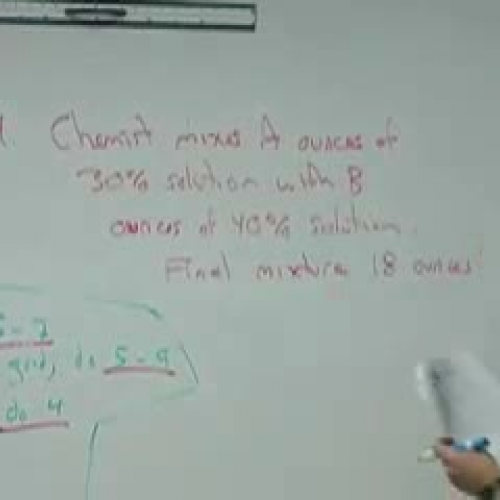 1. Chemist mixes A ounces of
30% solution with B
ounces of 40% solution.
Final mixture 18 ounces
5-7
do 5-9
do 4